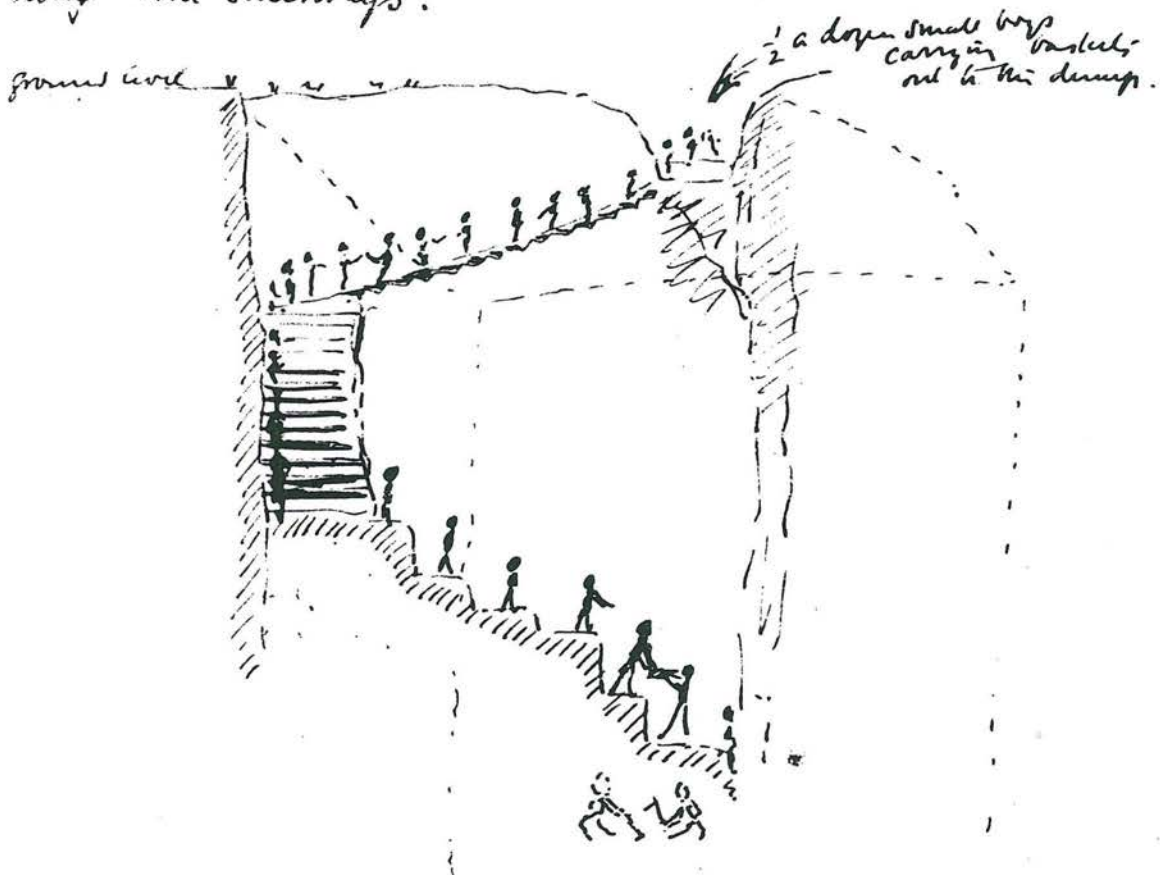 and
ground level
½ a dozen small boys
carrying baskets
out to the dump.